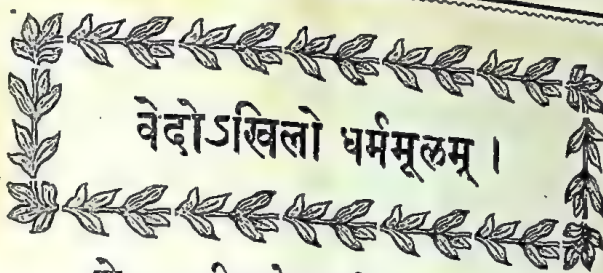 वेदोऽखिलो धर्ममूलम् ।